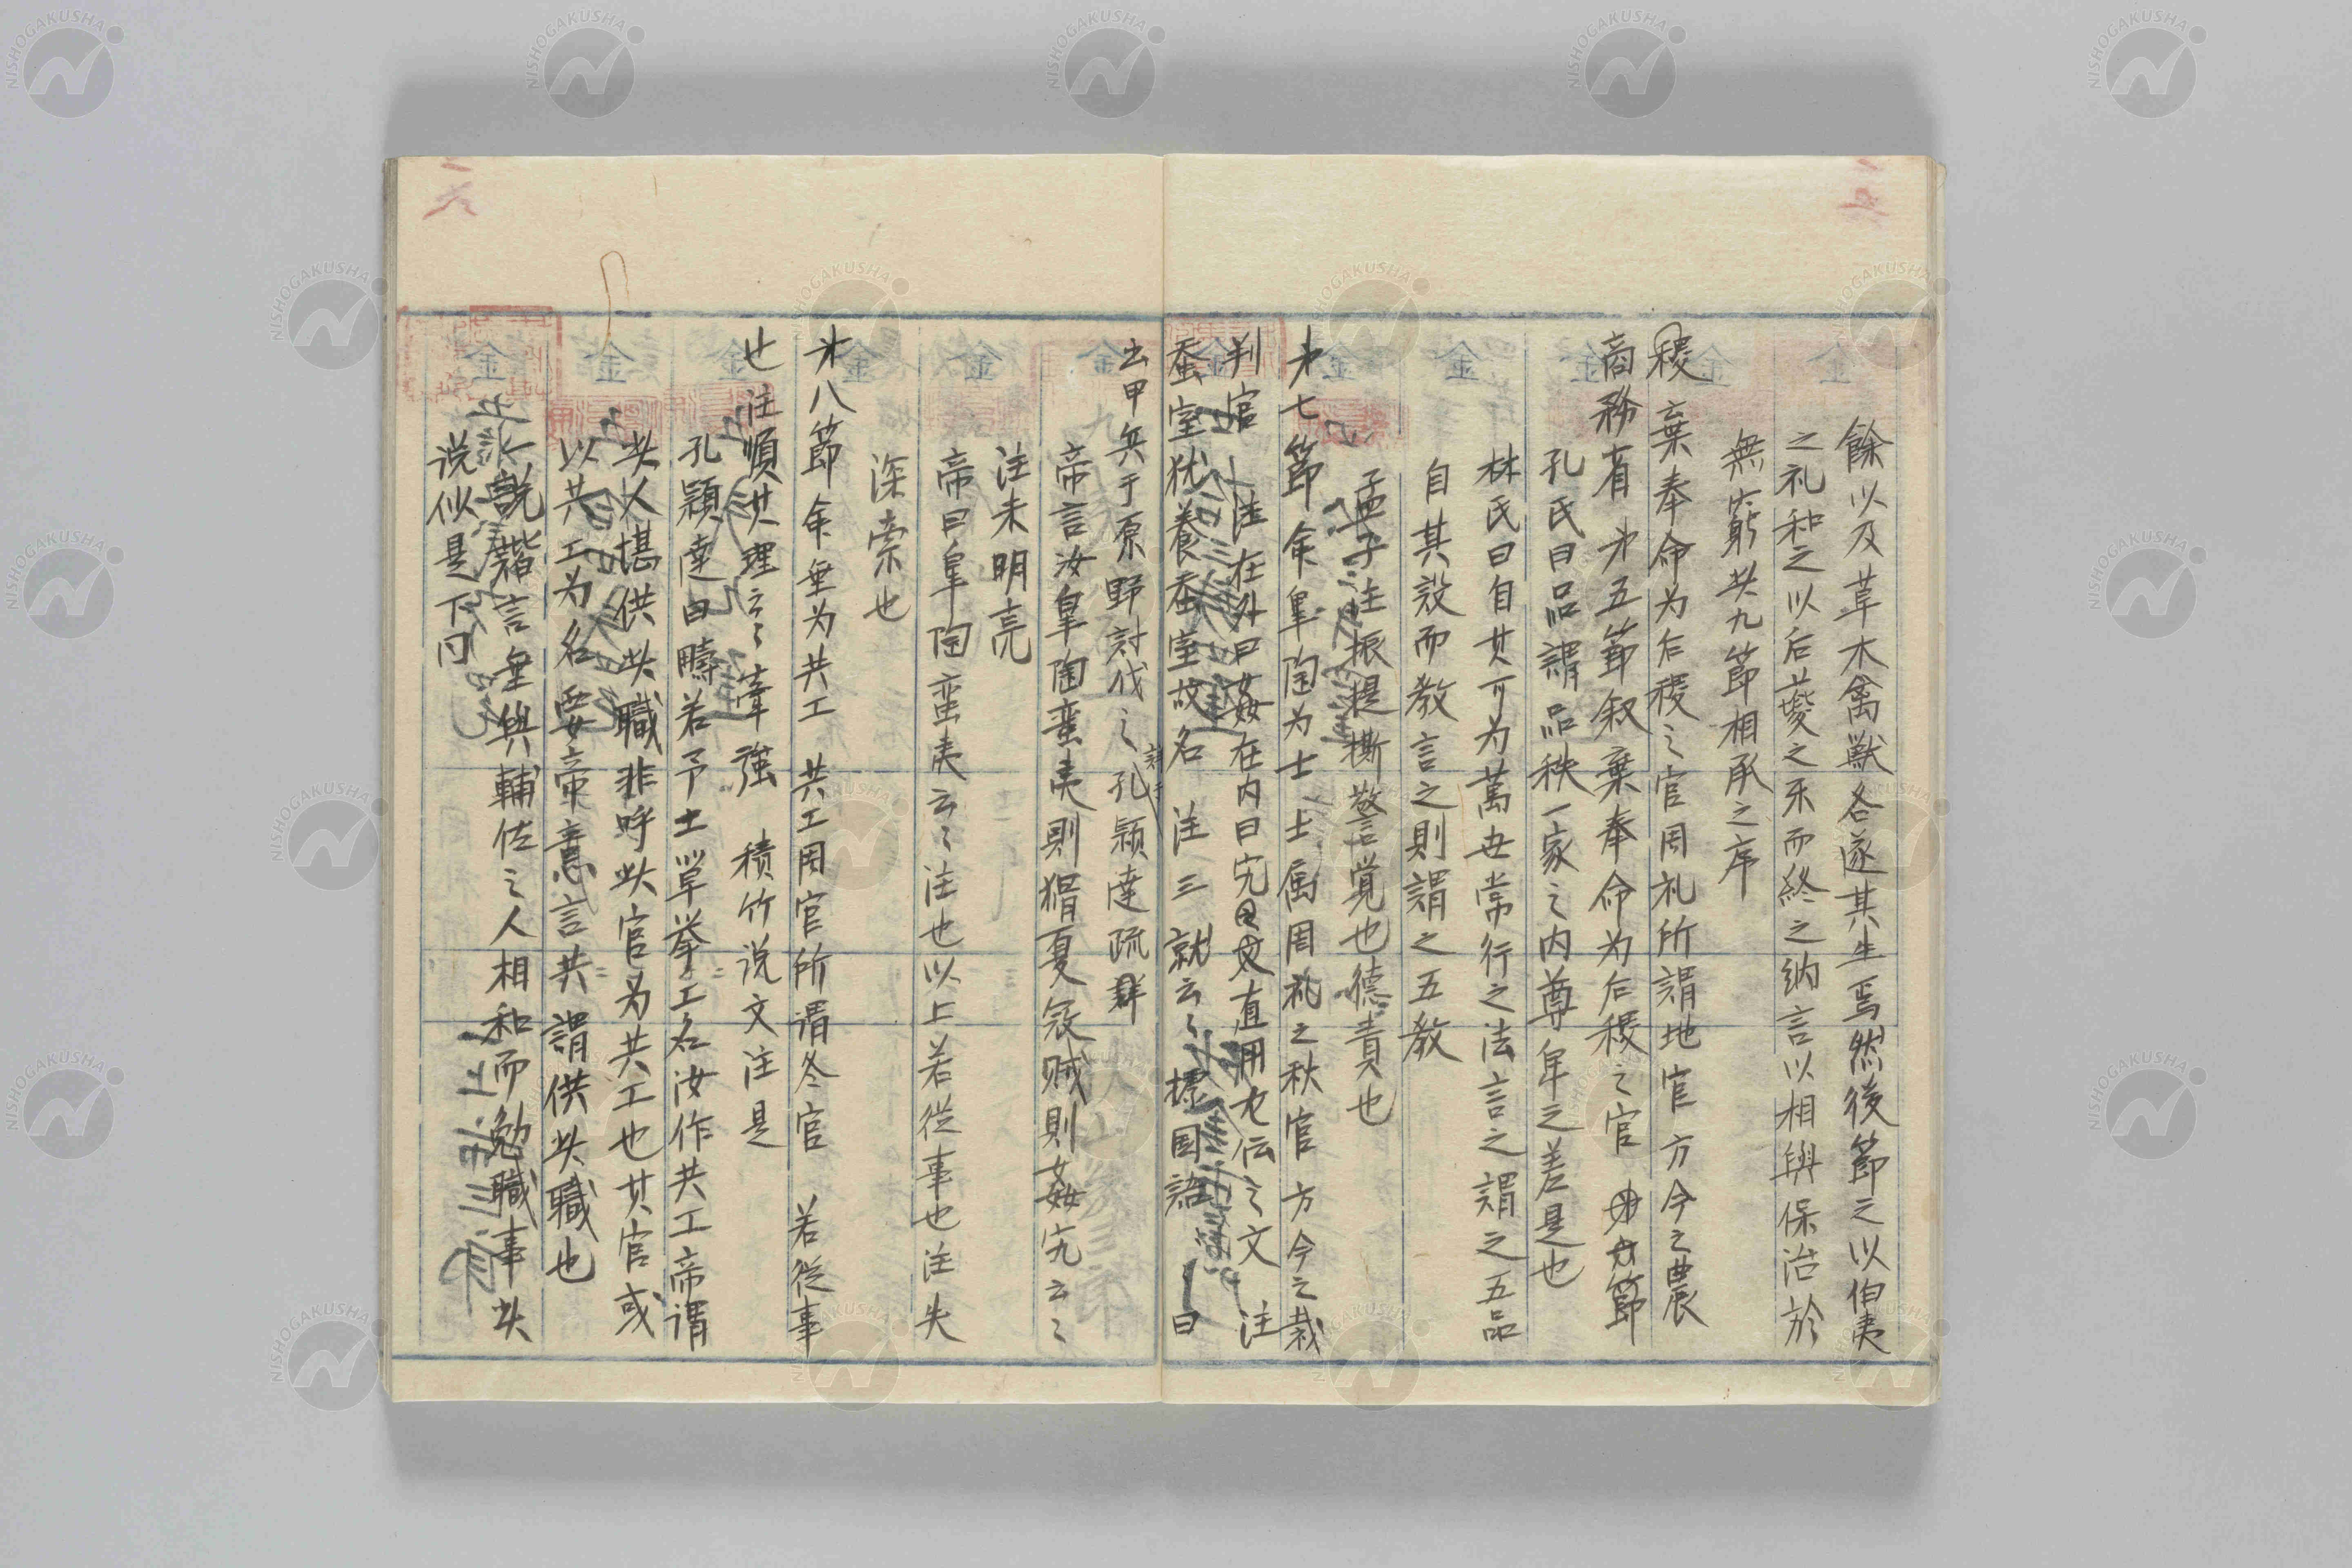 餘以及草木禽獣各遂其生焉然後節之以伯夷
之礼和之以后夔之乐而終之納言以相與保治於
無窮共九節相承之序
稷 棄奉命为后稷之官周礼所謂地官方今之農
商務省 㐧五節叙棄奉命为后稷之官 節
孔氏曰品謂品秩一家之内尊卑之差是也
林氏曰自其可为萬世常行之法言之謂之五品
自其設而教言之則謂之五教
孟子注振提撕警覚也德責也
㐧七節命皐陶为士 士属周礼之秋官 方今之裁
判官 注在外曰姦在内曰宄 直用左伝之文 注
蚕室犹養蚕室故名 注三就云々 標国語 曰
云甲兵于原野討伐之 孔穎達疏
帝言汝皐陶蛮夷則猾夏寇贼則姦宄云々
注未明亮
帝曰皐陶蛮夷云々注也以上若從事也注失
深索也
㐧八節命垂为共工 共工周官所谓冬官 若從事
也 注順其理云々牽強 積竹说文注是
孔穎達曰疇若予工單挙工名汝作共工帝谓
此人堪供此職非呼此官为共工也其官或
以共工为名要帝意言共謂供此職也
說諧言垂與輔佐之人相和而勉職事此
说似是下同
二六
金
金
金
金
金
金
金
金
NISHOGAKUSHA